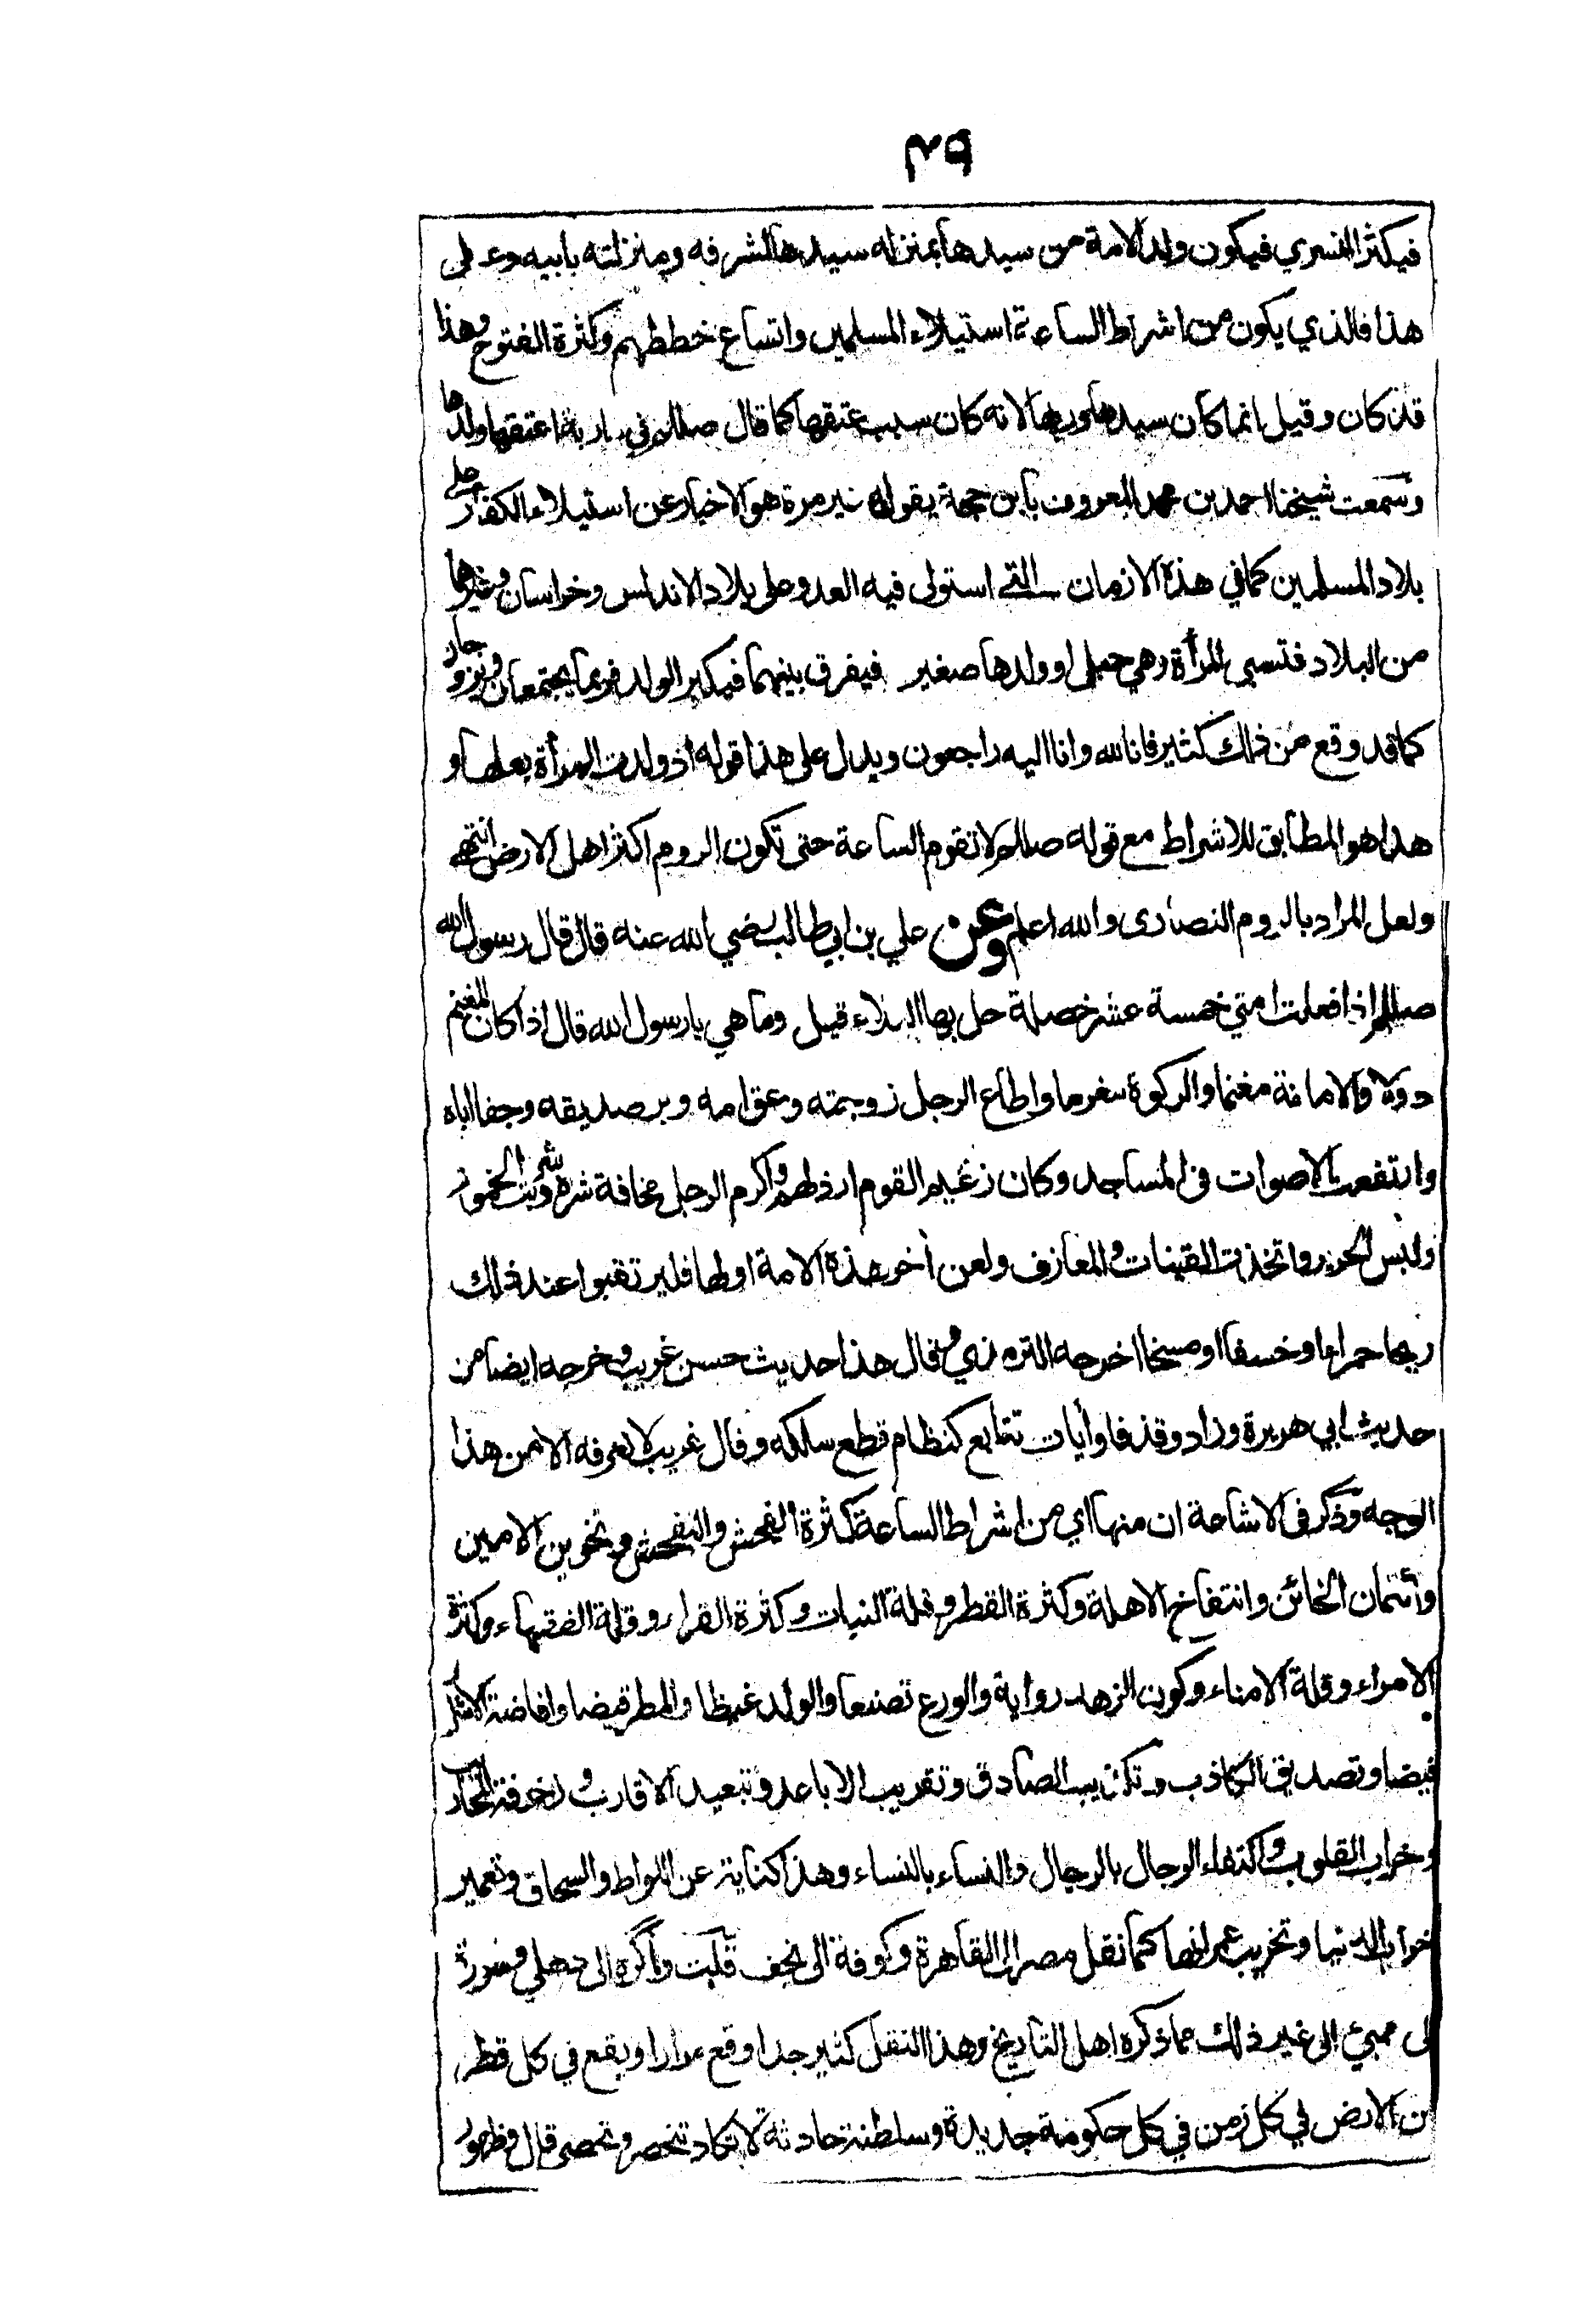 ٣٩
فيكثر التسري فيكون ولد الامة من سيدها بمنزلة سيدها لشرفه ومنزلته بابيه وعلى
هذا فالذي يكون من اشراط الساعة استيلاء المسلمين واتساع خططهم وكثرة الفتوح وهذا
قد كان وقيل انما كان سيدها وربها لانه كان سبب عتقها كما قال صللم في مارية اعتقها ولدها
وسمعت شيخنا احمد بن محمد المعروف بابن حجة يقوله غير مرة هو الاخبار عن استيلاء الكفار على
بلاد المسلمين كما في هذه الازمان التي استولى فيه العدو على بلاد الاندلس وخراسان وغيرها
من البلاد فتسبى المرأة وهي حبلى او ولدها صغير فيفرق بينهما فيكبر الولد فربما يجتمعان ويتزوجان
كما قد وقع من ذلك كثير فانا لله وانا اليه راجعون ويدل على هذا قوله اذ ولدت المرأة بعلها و
هذا هو المطابق للاشراط مع قوله صللم لا تقوم الساعة حتى تكون الروم اكثر اهل الارض انتهى
ولعل المراد بالروم النصارى والله اعلم وعن علي بن ابي طالب رضي الله عنه قال قال رسول الله
صللم اذا فعلت امتي خمسة عشر خصلة حل بها البلاء قيل وما هي يا رسول الله قال اذا كان المغنم
دولا والامانة مغنما والزكوة مغرما واطاع الرجل زوجته وعق امه وبر صديقه وجفا اباه
وارتفعت الاصوات في المساجد وكان زعيم القوم ارذلهم واكرم الرجل مخافة شره وشربت الخمور
ولبس الحرير واتخذت القينات والمعازف ولعن أخر هذه الامة اولها فليرتقبوا عند ذلك
ريحا حمراء او خسفا او مسخا اخرجه الترمذي وقال هذا حديث حسن غريب وخرجه ايضا من
حديث ابي هريرة وزاد وقذفا وأيات تتابع كنظام قطع سلكه وقال غريب لا نعرفه الا من هذا
الوجه وذكر في الاشاعة ان منها اي من اشراط الساعة كثرة الفحش والتفحش وتخوين الامين
وأئتمان الخائن وانتفاخ الاهلة وكثرة القطر وقلة النبات وكثرة القراء وقلة الفقهاء وكثرة
الامراء وقلة الامناء وكون الزهد رواية والورع تصنعا والولد غيظا والمطر قيضا وافاضة الاشرار
فيضا وتصديق الكاذب وتكذيب الصادق وتقريب الاباعد وتبعيد الاقارب وزخرفة المحاريب
وخراب القلوب واكتفاء الرجال بالرجال والنساء بالنساء وهذا كناية عن اللواط والسحاق وتعمير
خراب الدنيا وتخريب عمرانها كما نقل مصر الى القاهرة وكوفة الى نجف قلت وأگره الى دهلي وسورة
الى ممبئ الى غير ذلك مما ذكره اهل التاريخ وهذا النقل كثير جدا وقع مرارا ويقع في كل قطر
من الارض في كل زمن في كل حكومة جديدة وسلطنة حادثة لا تكاد تنحصر وتحصى قال وظهور